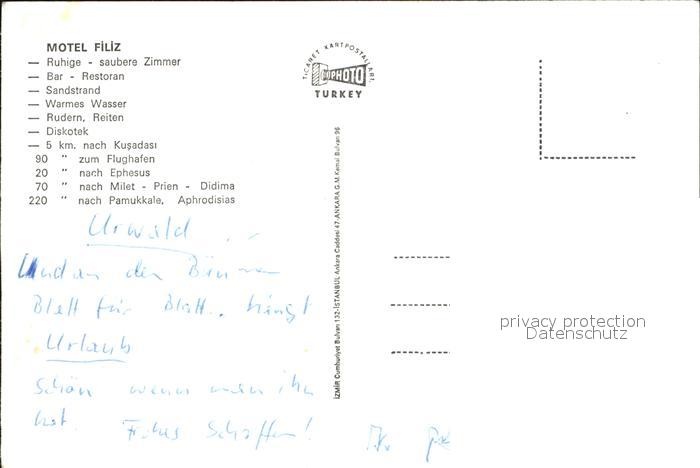 MOTEL FİLİZ
— Ruhige - saubere Zimmer
— Bar - Restoran
— Sandstrand
— Warmes Wasser
— Rudern, Reiten
— Diskotek
— 5 km. nach Kuşadası
90 " zum Flughafen
20 " nach Ephesus
70 " nach Milet - Prien - Didima
220 " nach Pamukkale, Aphrodisias
TİCARET KARTPOSTALLARI,
TURKEY
İZMİR Cumhuriyet Bulvarı 132-İSTANBUL Ankara Caddesi 47-ANKARA G.M.Kemal Bulvarı 96
Urwald
Und an den Bäumen
Blatt für Blatt.. hängt
Urlaub
Schön wenn man ihn
hat. Frohes Schaffen!
privacy protection
Datenschutz